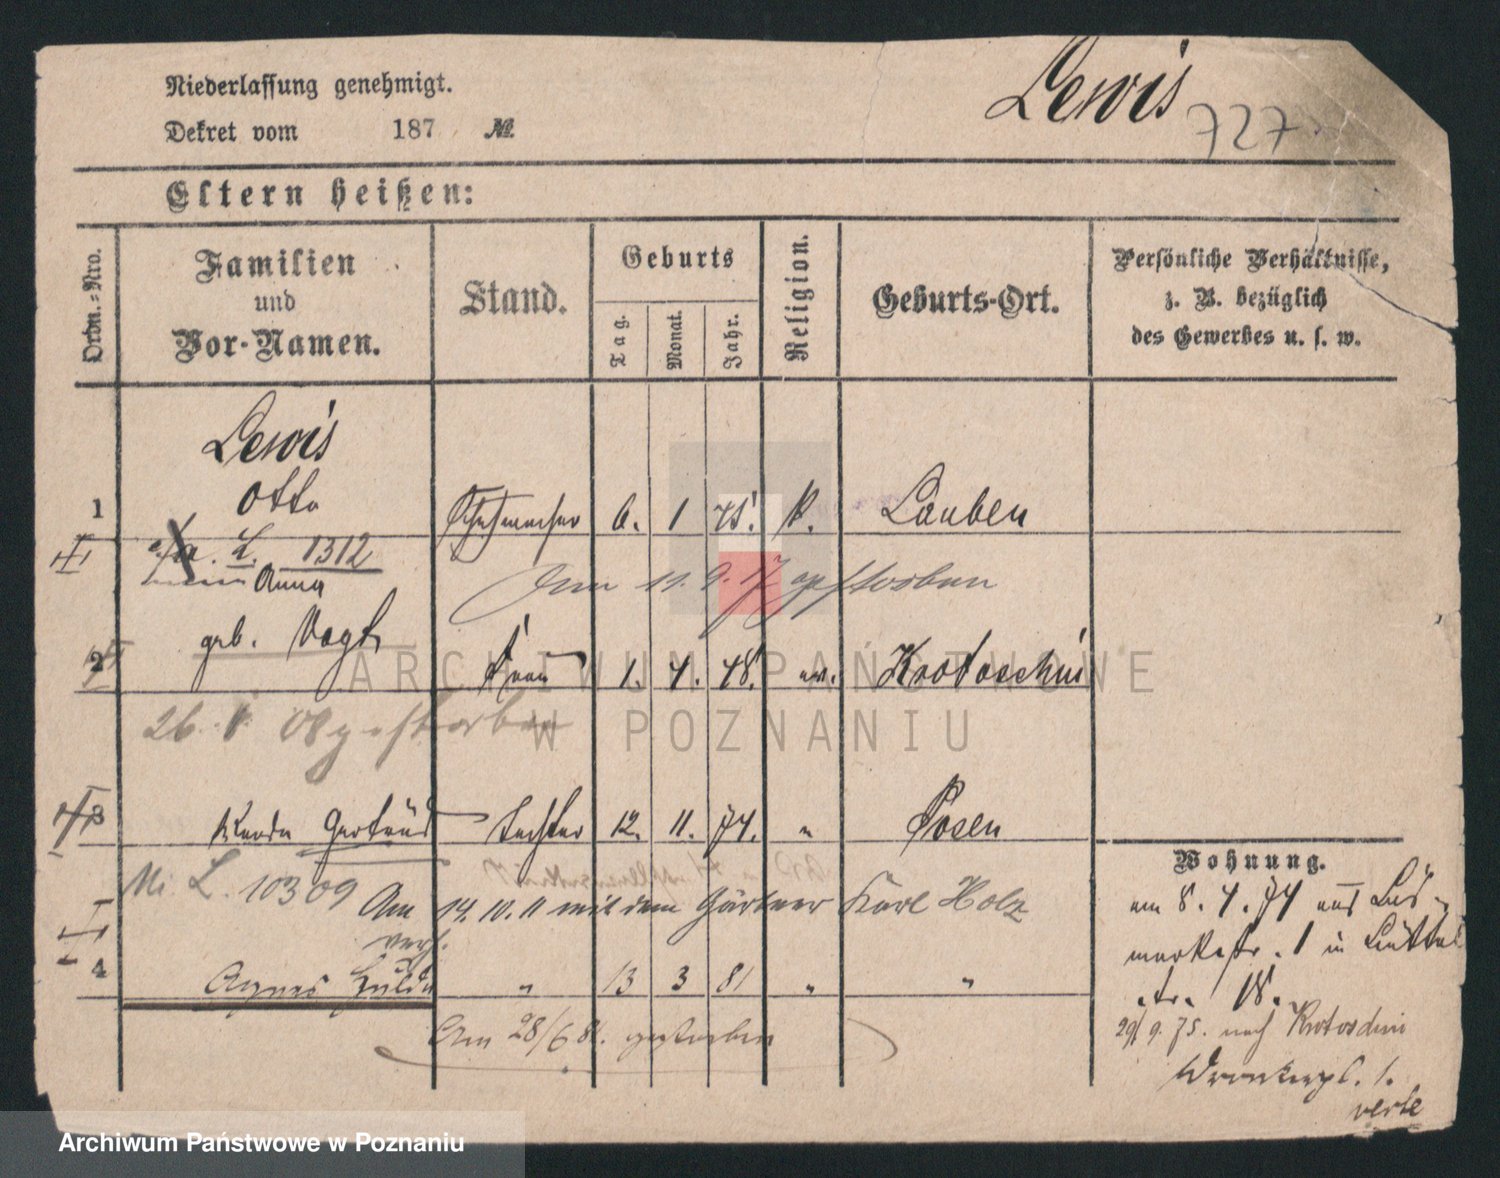 Lewis
727
Niederlassung genehmigt.
Dekret vom 187 №
Eltern heißen:
Ordn.-Nro.
Familien
und
Vor-Namen.
Stand.
Geburts
Tag.
Monat.
Jahr.
Religion.
Geburts-Ort.
Persönliche Verhältnisse,
z. B. bezüglich
des Gewerbes u. s. w.
Lewis
Otto
1 6. 1 Lauben
L. 1312
Anna
Am 11. 9. 17 gestorben
geb. Vogt
2 Frau 1. 4. 48. ev. Krotoschin
26. gestorben
3 Gertrud Tochter 12. 11. 74. " Posen
L. 10309
Am 14. 10. 11 mit dem Gärtner Karl Holz
verh.
4 Agnes Hulda " 13 3 81 " "
Am 28/6 81. gestorben
Wohnung.
am 8. 4. 74 aus Bis-
markstr. 1 in
str. 18.
29/9. 75. nach Krotoschin
Wronkerpl. 1.
verte
ARCHIWUM PAŃSTWOWE
W POZNANIU
Archiwum Państwowe w Poznaniu